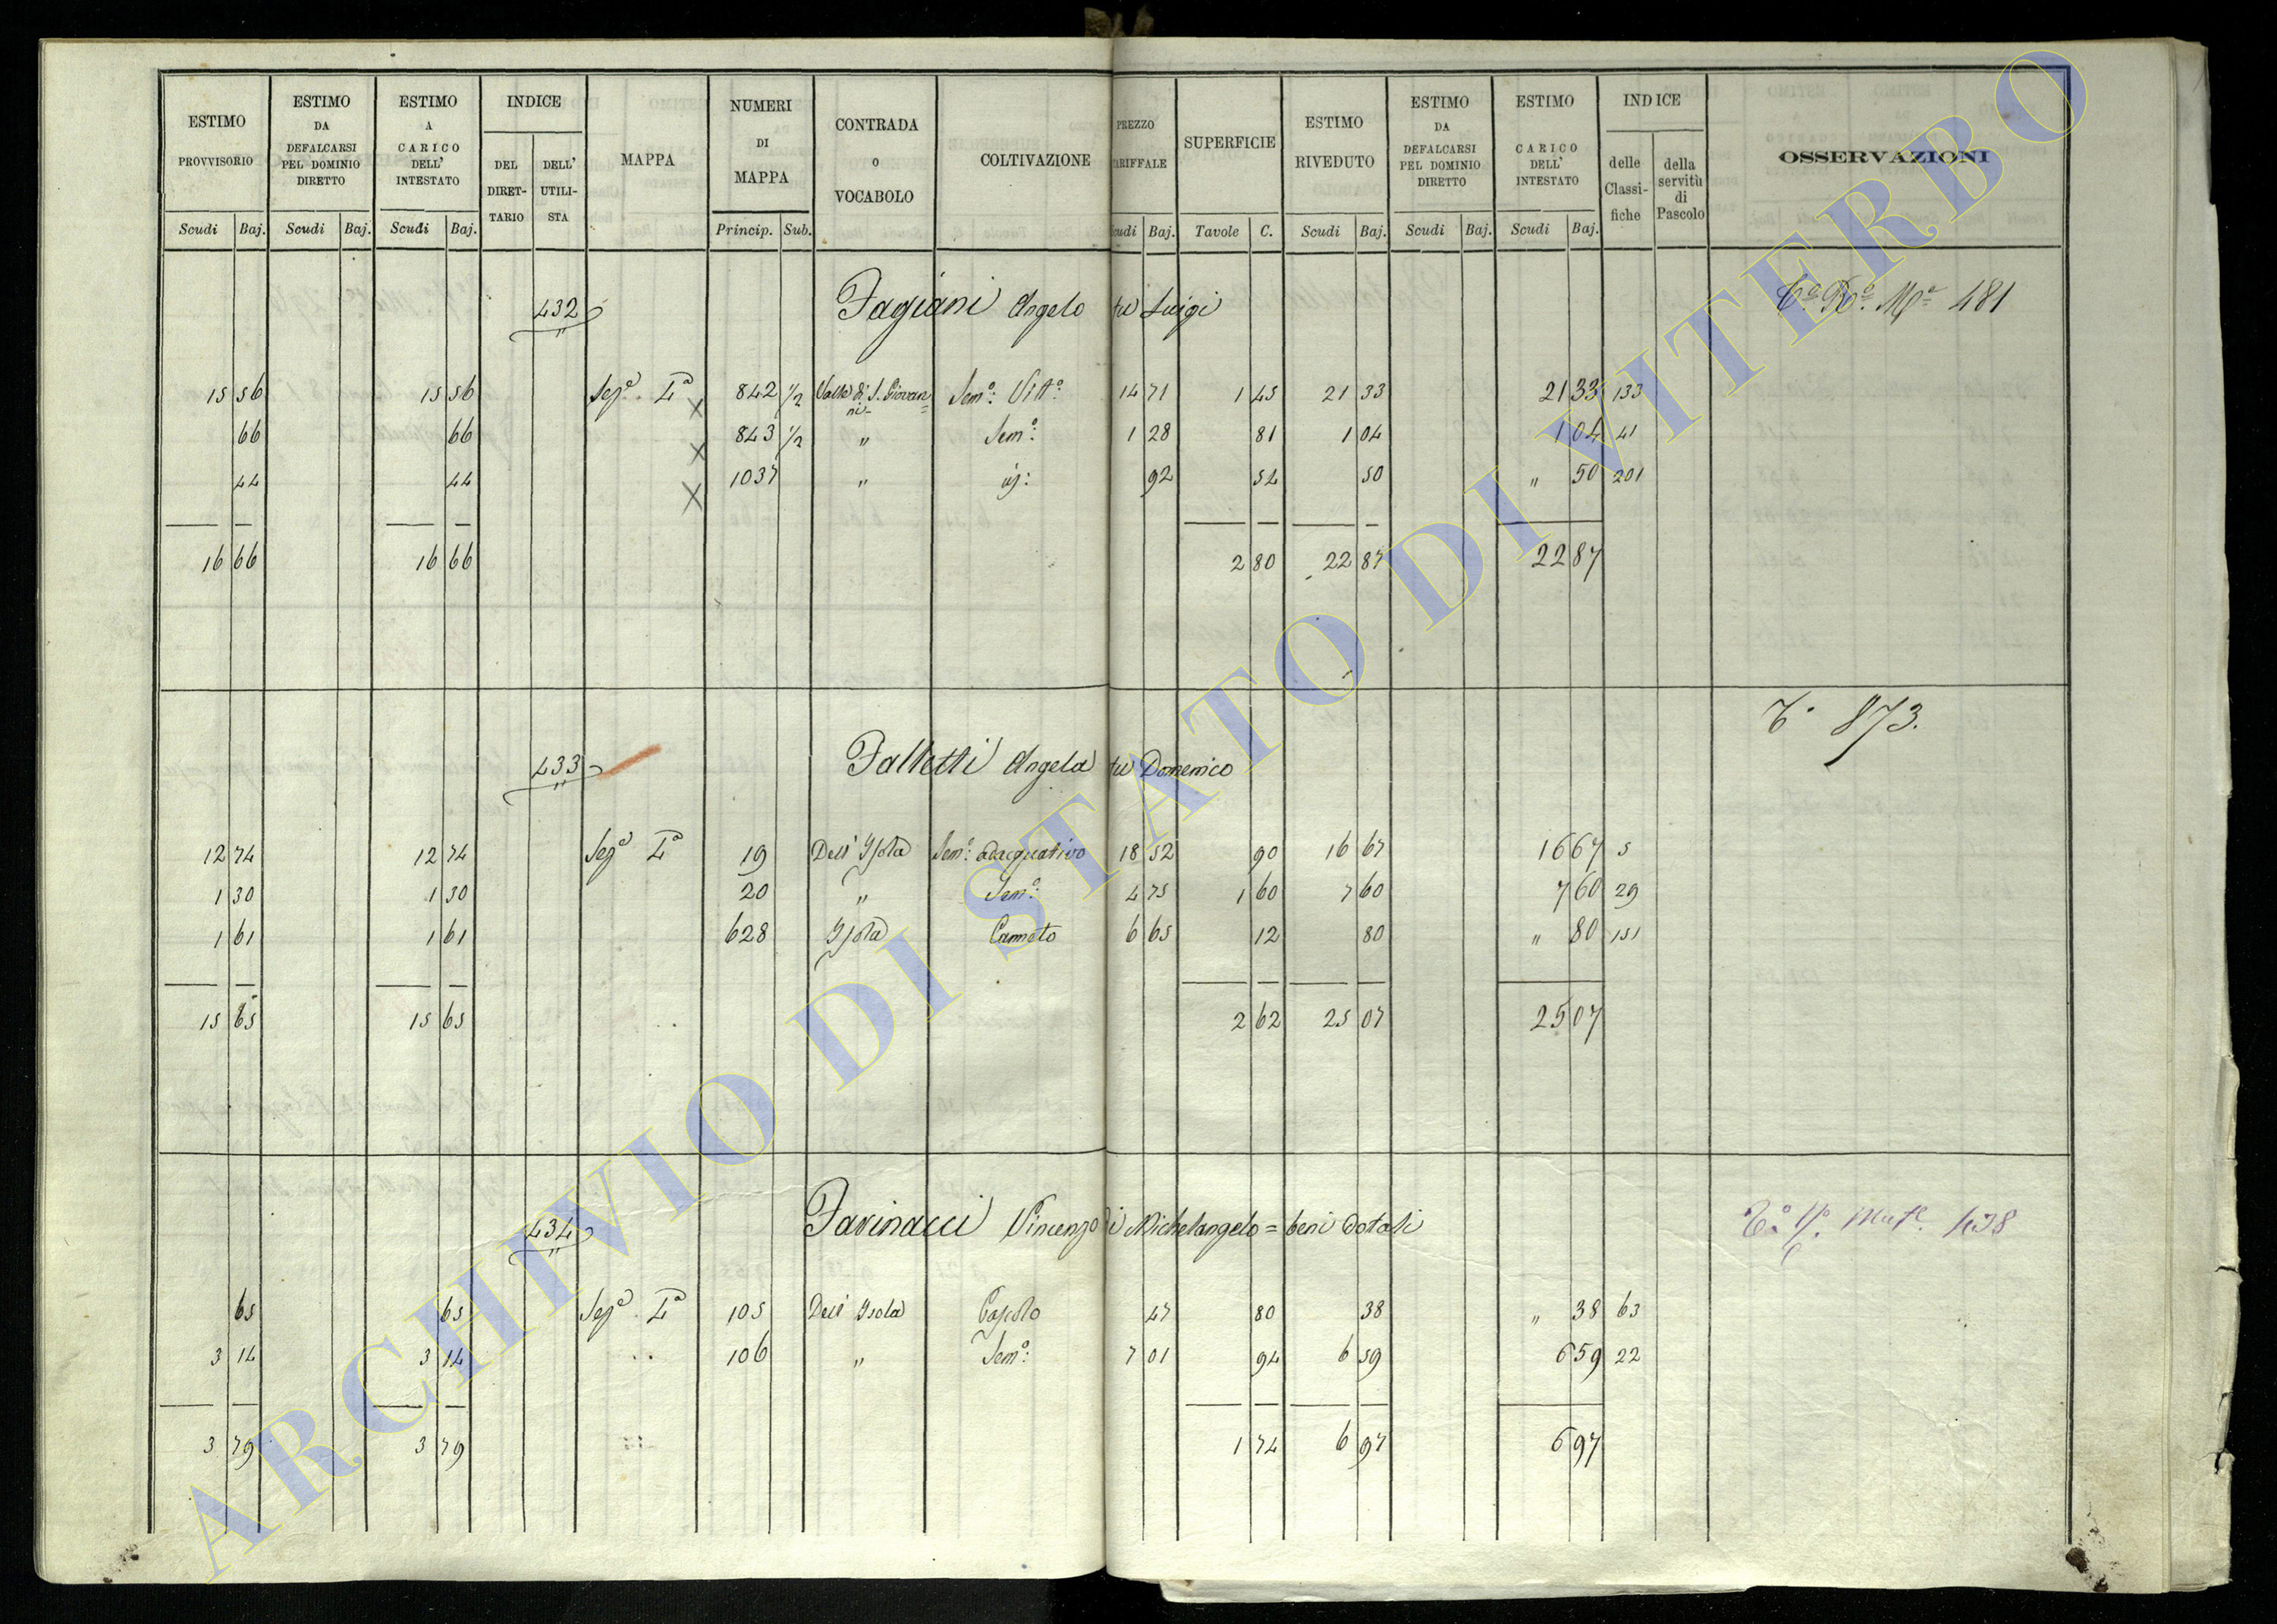 ESTIMO PROVVISORIO | ESTIMO DA DEFALCARSI PEL DOMINIO DIRETTO | ESTIMO A CARICO DELL' INTESTATO | INDICE DEL DIRET-TARIO | DELL' UTILI-STA | MAPPA | NUMERI DI MAPPA | CONTRADA O VOCABOLO | COLTIVAZIONE | PREZZO TARIFFALE | SUPERFICIE | ESTIMO RIVEDUTO | ESTIMO DA DEFALCARSI PEL DOMINIO DIRETTO | ESTIMO A CARICO DELL' INTESTATO | INDICE delle Classi-fiche | della servitù di Pascolo | OSSERVAZIONI
Scudi Baj. | Scudi Baj. | Scudi Baj. | Princip. Sub. | Scudi Baj. | Tavole C. | Scudi Baj. | Scudi Baj. | Scudi Baj.
432 Fagiani Angelo fu Luigi 481
15 56 | 15 56 | Sez.e I.a | 842 1/2 | Valle di S. Giovanni | Sem.o Vit.o | 14 71 | 1 45 | 21 33 | 21 33 | 133
66 | 66 | 843 1/2 | " | Sem.o | 1 28 | 81 | 1 04 | 1 04 | 41
44 | 44 | 1037 | " | | 92 | 54 | 50 | " 50 | 201
16 66 | 16 66 | 2 80 | 22 87 | 22 87
T.o 873.
433 Falletti Angela fu Domenico
12 74 | 12 74 | Sez.e I.a | 19 | Dell' Isola | Sem.o adacquativo | 18 52 | 90 | 16 67 | 16 67 | 5
1 30 | 1 30 | 20 | " | Sem.o | 4 75 | 1 60 | 7 60 | 7 60 | 29
1 61 | 1 61 | 628 | Isola | Canneto | 6 65 | 12 | 80 | " 80 | 151
15 65 | 15 65 | 2 62 | 25 07 | 25 07
434 Farinacci Vincenzo di Michelangelo = beni dotali 438
65 | 65 | Sez.e I.a | 105 | Dell' Isola | Pascolo | 47 | 80 | 38 | " 38 | 63
3 14 | 3 14 | 106 | " | Sem.o | 7 01 | 94 | 6 59 | 6 59 | 22
3 79 | 3 79 | 1 74 | 6 97 | 6 97
ARCHIVIO DI STATO DI VITERBO